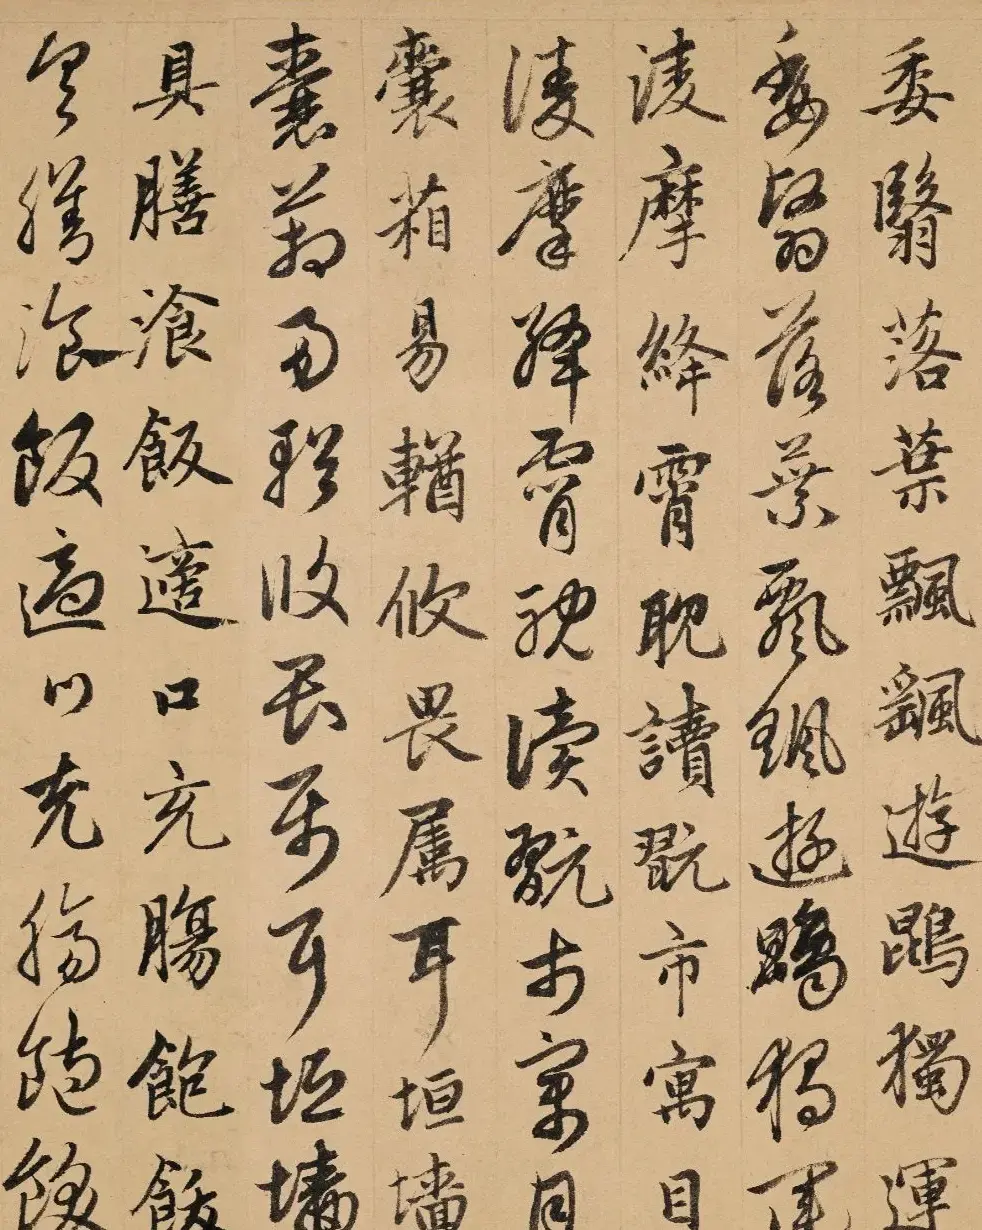 委翳落葉飄颻遊鵾獨運
委翳落葉飄颻遊鵾獨運
凌摩絳霄耽讀翫市寓目
凌摩絳霄耽讀翫市寓目
囊箱易輶攸畏属耳垣墻
囊箱易輶攸畏属耳垣墻
具膳飡飯適口充腸飽飫
具膳飡飯適口充腸飽飫